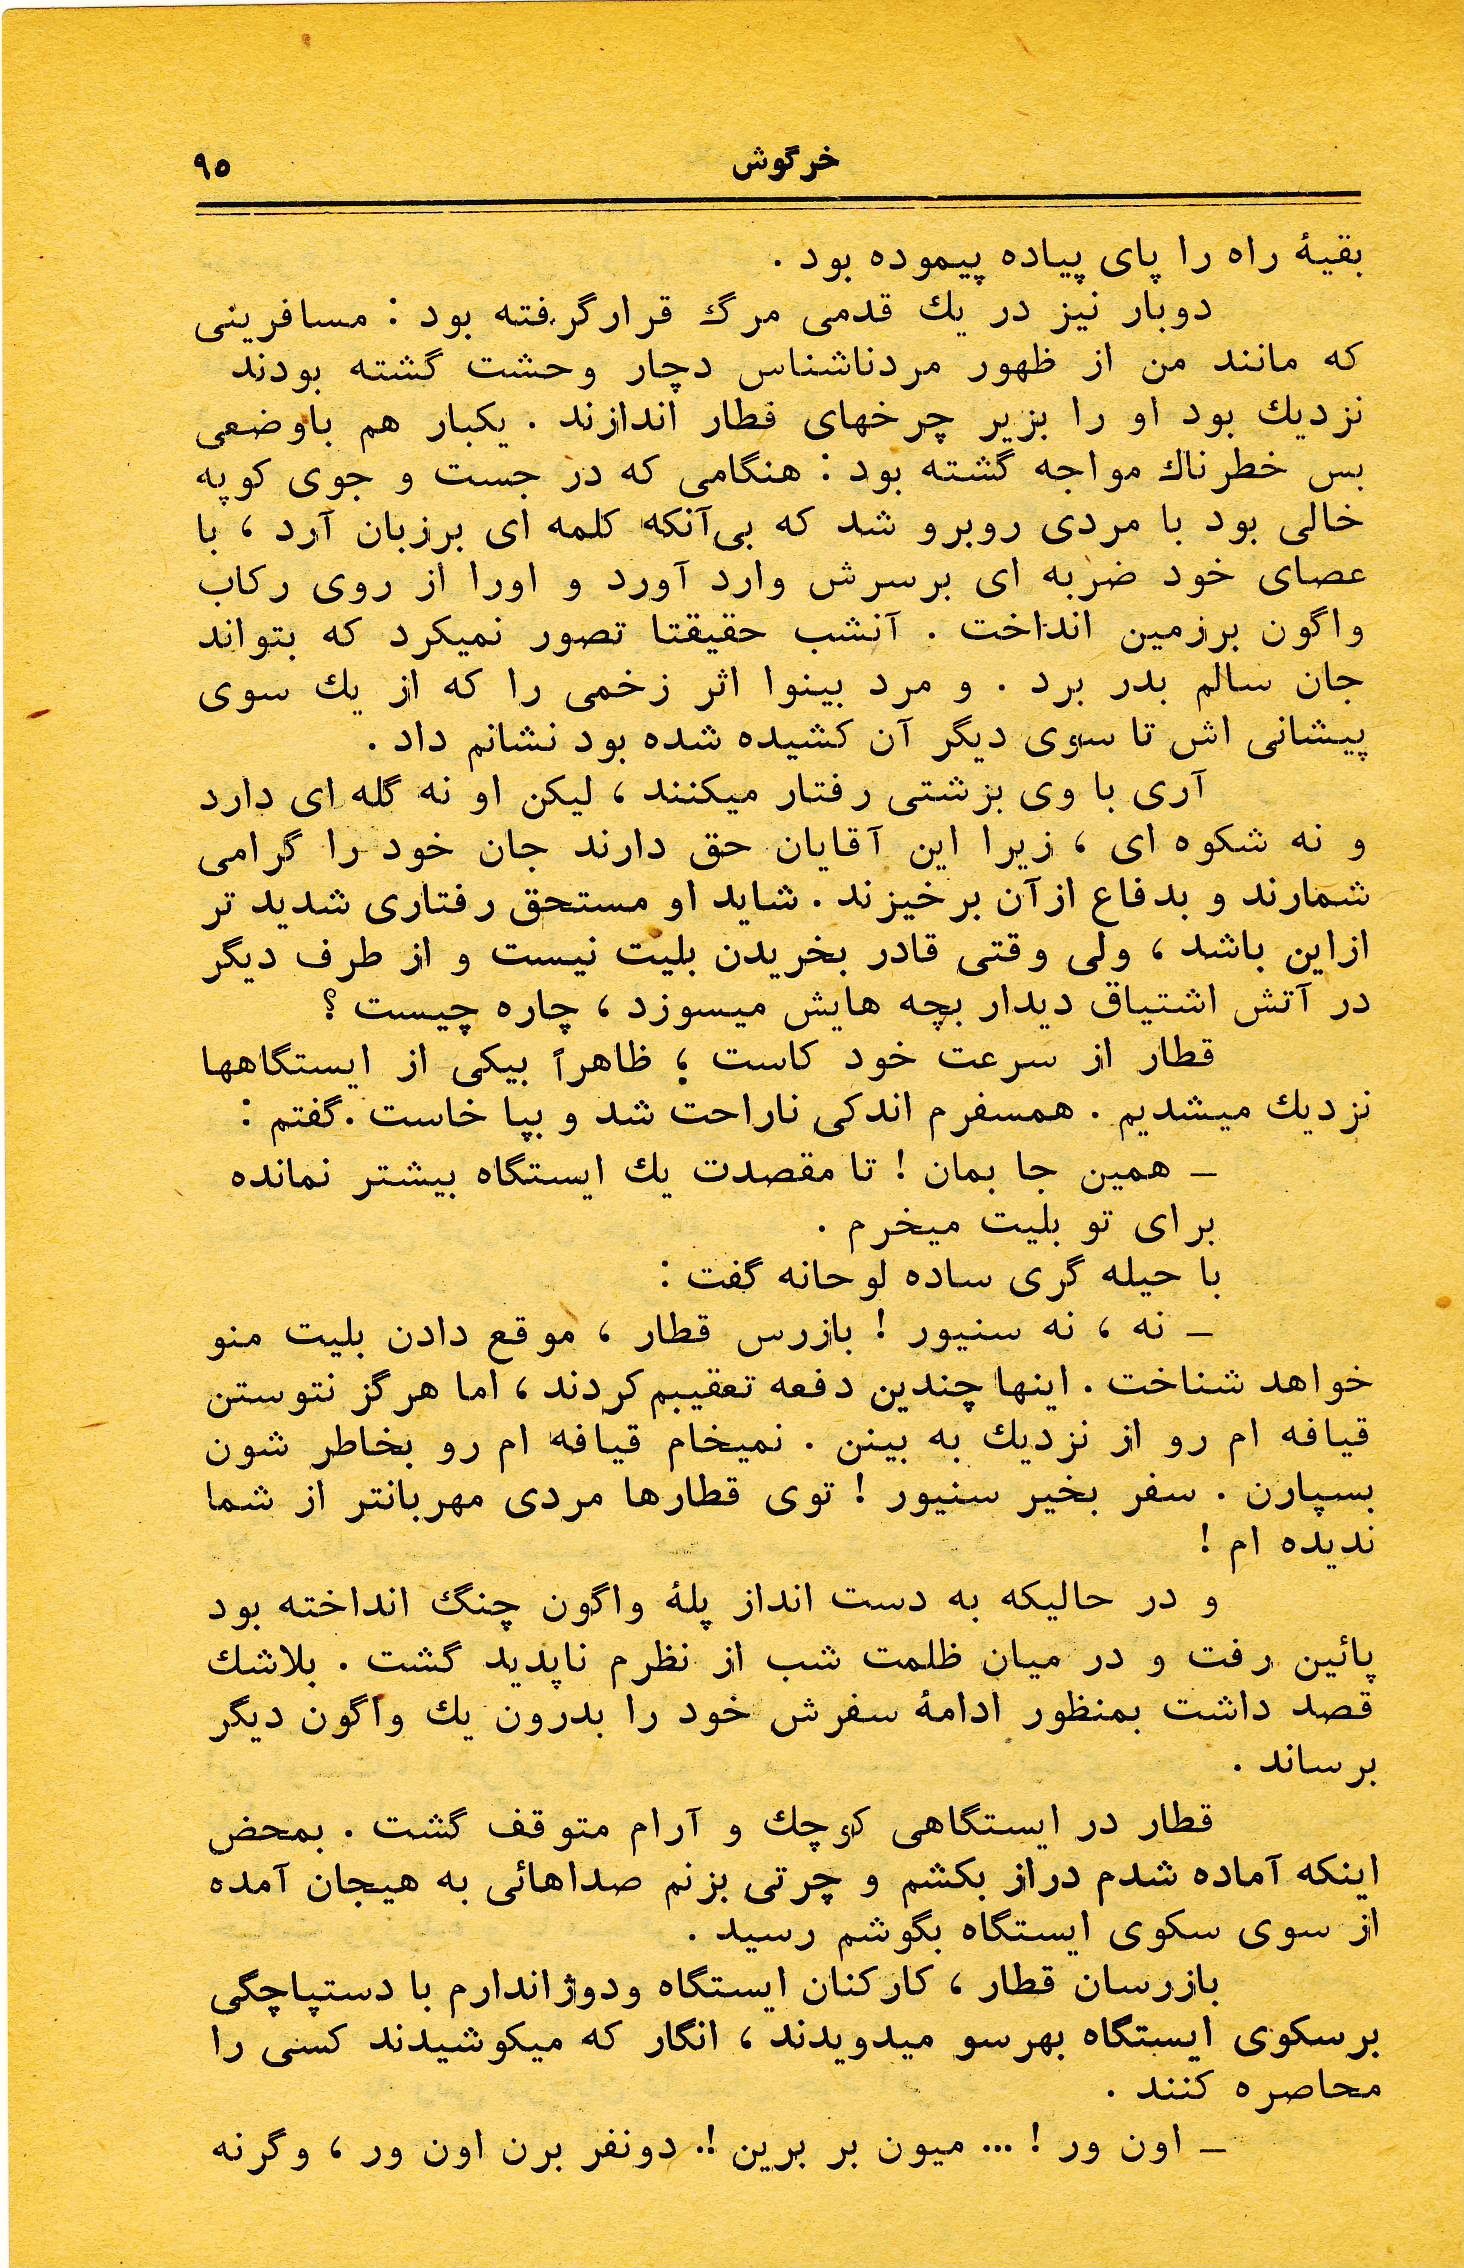 خرگوش
۹۵
بقیهٔ راه را پای پیاده پیموده بود .
دوبار نیز در یك قدمی مرگ قرارگرفته بود : مسافرینی
که مانند من از ظهور مردناشناس دچار وحشت گشته بودند
نزدیك بود او را بزیر چرخهای قطار اندازند . یکبار هم باوضعی
بس خطرناك مواجه گشته بود : هنگامی که در جست و جوی کوپه
خالی بود با مردی روبرو شد که بی‌آنکه کلمه ای برزبان آرد ، با
عصای خود ضربه ای برسرش وارد آورد و اورا از روی رکاب
واگون برزمین انداخت . آنشب حقیقتا تصور نمیکرد که بتواند
جان سالم بدر برد . و مرد بینوا اثر زخمی را که از یك سوی
پیشانی اش تا سوی دیگر آن کشیده شده بود نشانم داد .
آری با وی بزشتی رفتار میکنند ، لیکن او نه گله ای دارد
و نه شکوه ای ، زیرا این آقایان حق دارند جان خود را گرامی
شمارند و بدفاع ازآن برخیزند . شاید او مستحق رفتاری شدید تر
ازاین باشد ، ولی وقتی قادر بخریدن بلیت نیست و از طرف دیگر
در آتش اشتیاق دیدار بچه هایش میسوزد ، چاره چیست ؟
قطار از سرعت خود کاست ؛ ظاهراً بیکی از ایستگاهها
نزدیك میشدیم . همسفرم اندکی ناراحت شد و بپا خاست .گفتم :
ـ همین جا بمان ! تا مقصدت یك ایستگاه بیشتر نمانده
برای تو بلیت میخرم .
با حیله گری ساده لوحانه گفت :
ـ نه ، نه سنیور ! بازرس قطار ، موقع دادن بلیت منو
خواهد شناخت . اینها چندین دفعه تعقیبم کردند ، اما هرگز نتوستن
قیافه ام رو از نزدیك به بینن . نمیخام قیافه ام رو بخاطر شون
بسپارن . سفر بخیر سنیور ! توی قطارها مردی مهربانتر از شما
ندیده ام !
و در حالیکه به دست انداز پلهٔ واگون چنگ انداخته بود
پائین رفت و در میان ظلمت شب از نظرم ناپدید گشت . بلاشك
قصد داشت بمنظور ادامهٔ سفرش خود را بدرون یك واگون دیگر
برساند .
قطار در ایستگاهی کوچك و آرام متوقف گشت . بمحض
اینکه آماده شدم دراز بکشم و چرتی بزنم صداهائی به هیجان آمده
از سوی سکوی ایستگاه بگوشم رسید .
بازرسان قطار ، کارکنان ایستگاه ودوژاندارم با دستپاچگی
برسکوی ایستگاه بهرسو میدویدند ، انگار که میکوشیدند کسی را
محاصره کنند .
ـ اون ور ! ... میون بر برین !. دونفر برن اون ور ، وگرنه